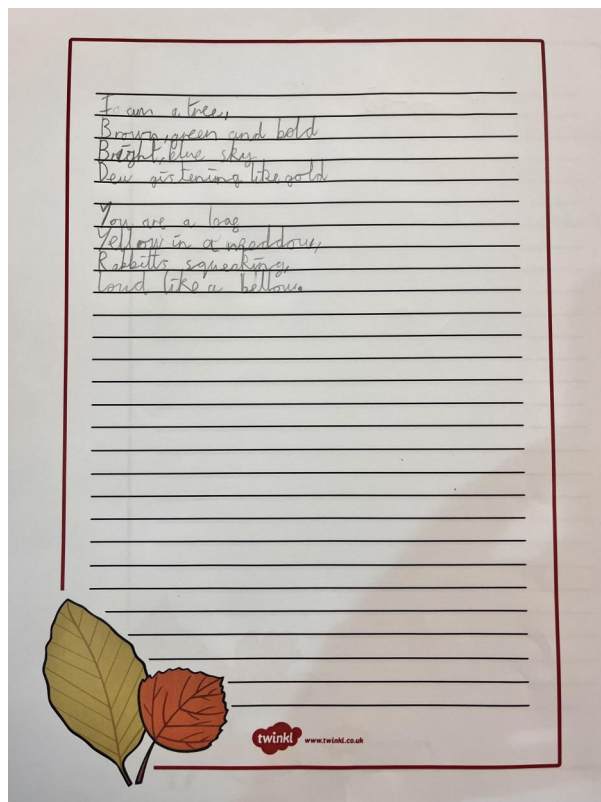 I am a tree,
Brown, green and bold
Bright, blue sky
Dew gistening like gold
You are a
Yellow in a meaddow,
Rabbitts squeaking,
loud like a bellow.
twinkl www.twinkl.co.uk